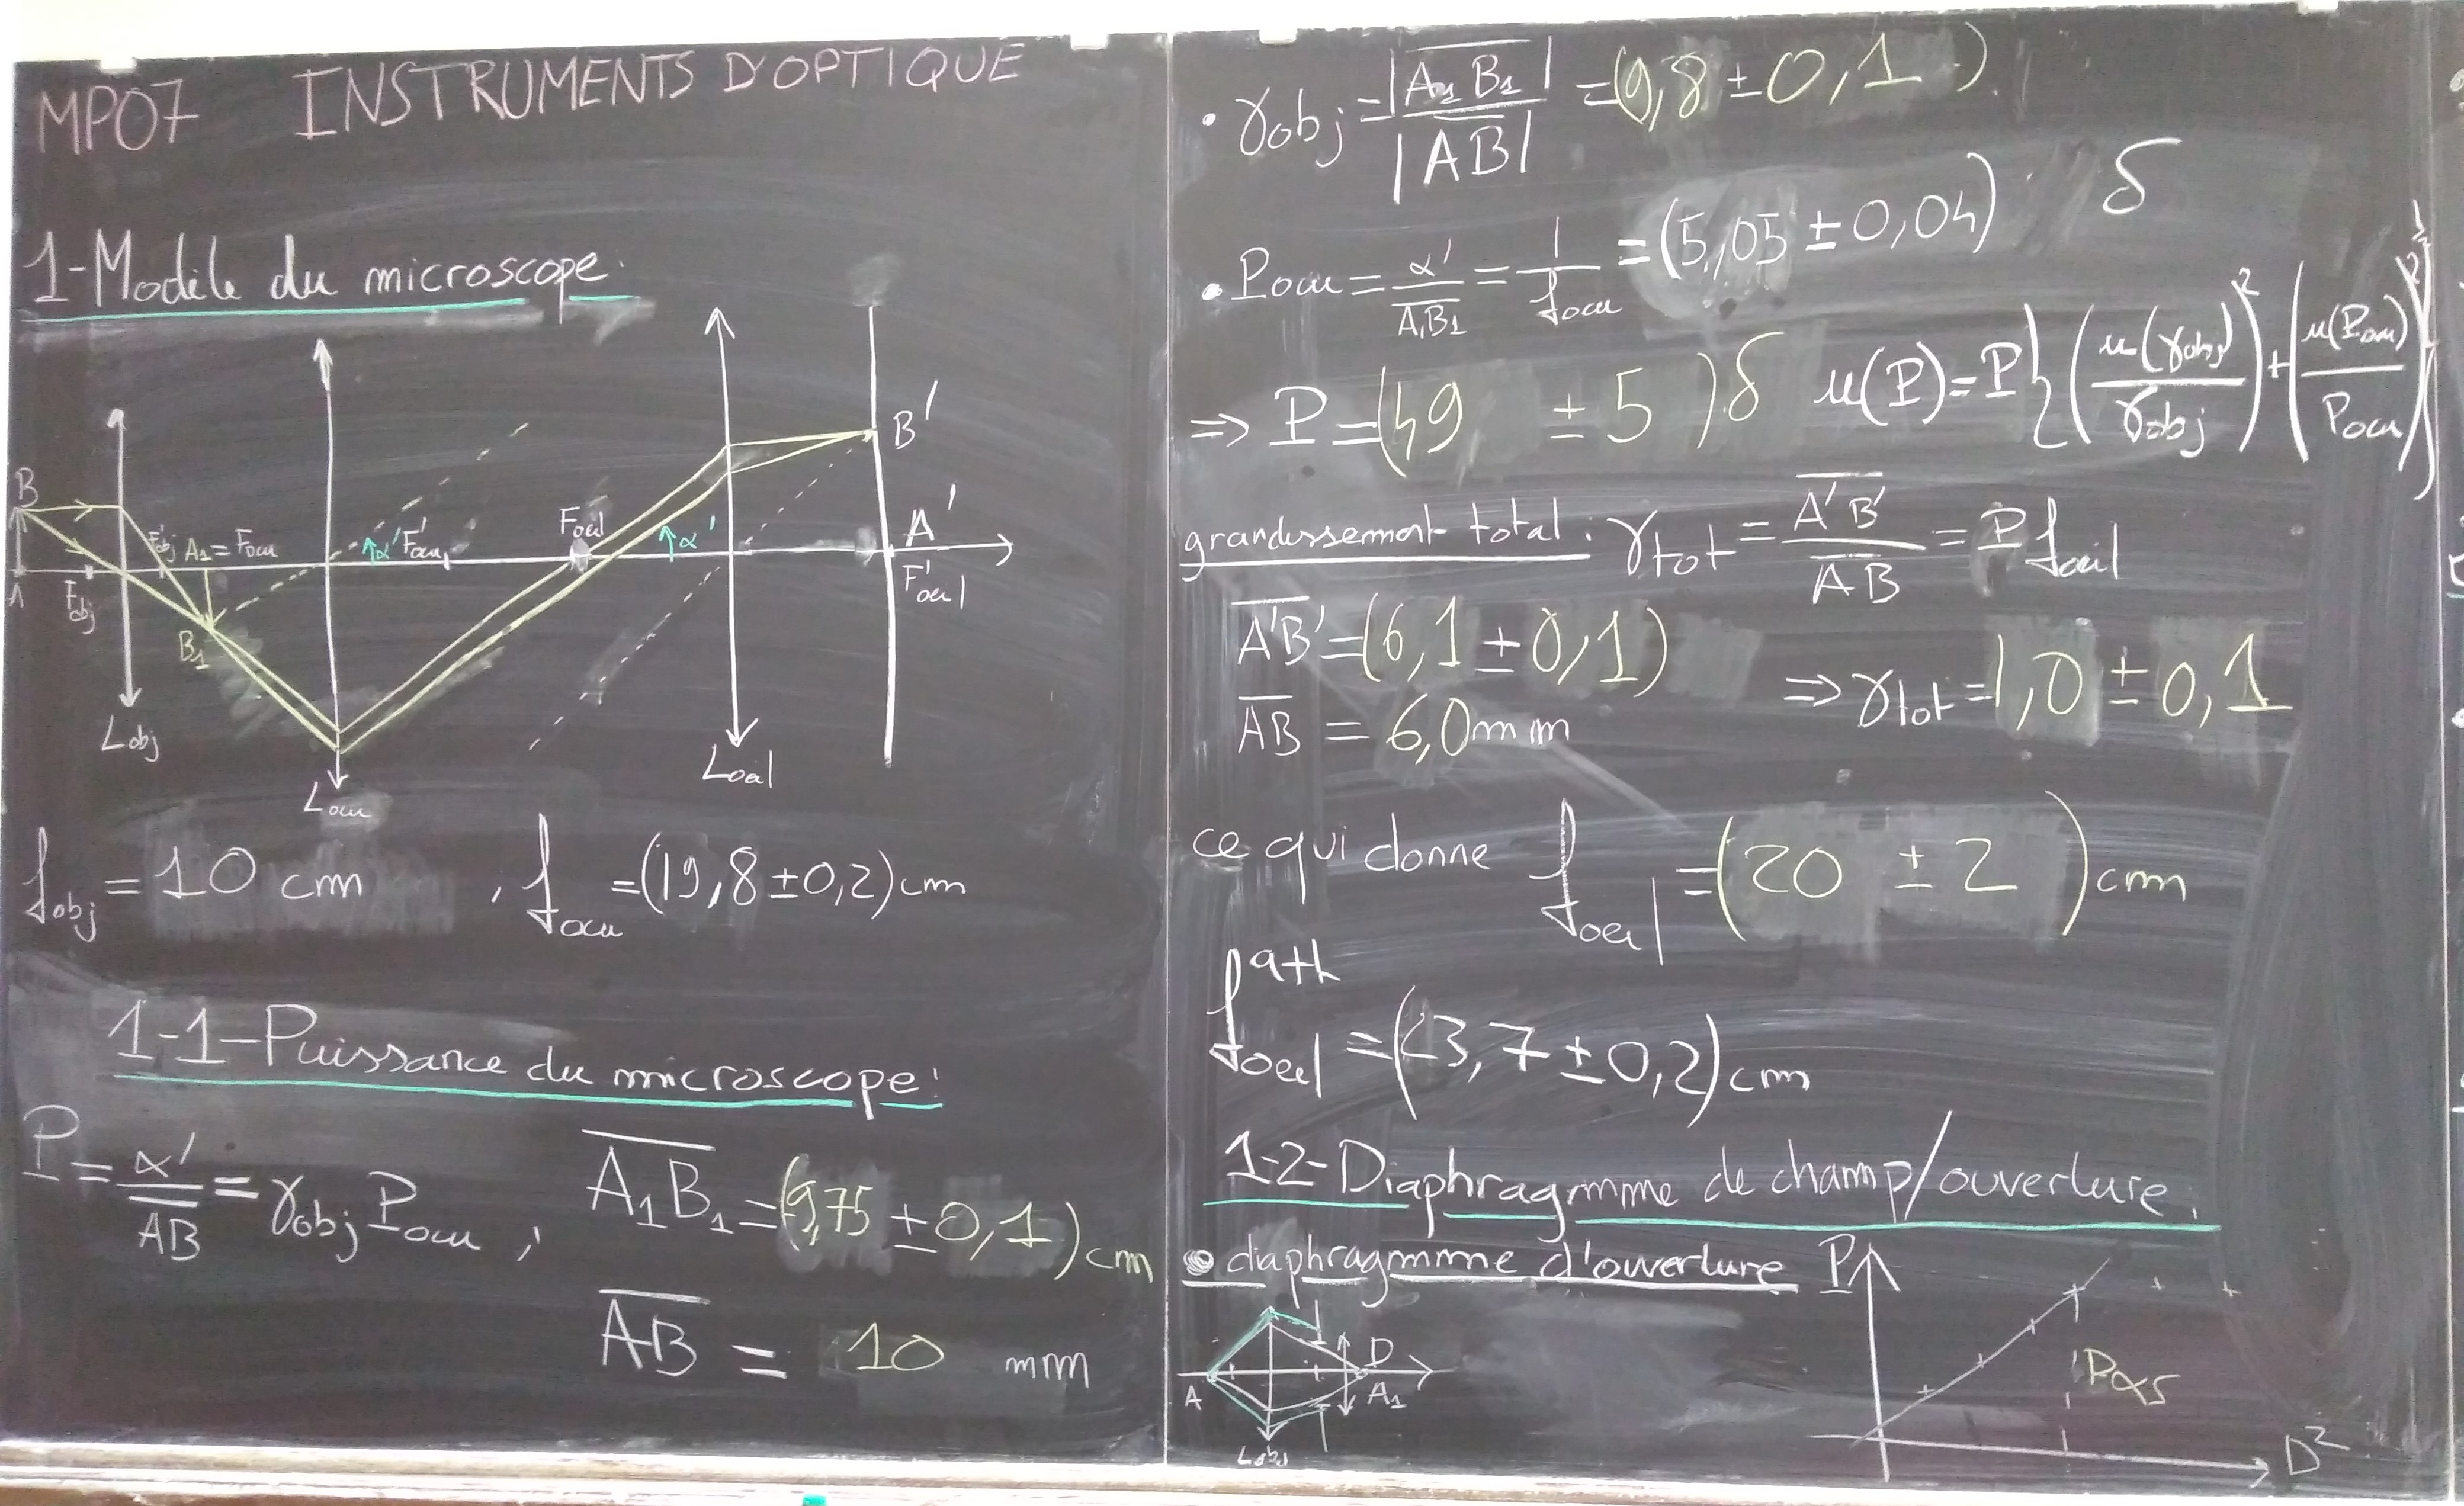 MP07 INSTRUMENTS D'OPTIQUE
1-Modèle du microscope:
B
A
Fobj
F'obj
A1 = Focu
B1
Lobj
Locu
α'
F'ocu
Foeil
α'
Loeil
B'
A'
F'oeil
fobj = 10 cm , focu = (19,8 ± 0,2) cm
1-1-Puissance du microscope:
P = α'/AB = γobj Pocu , A1B1 = (9,75 ± 0,1) cm
AB = 10 mm
• γobj = |A1B1|/|AB| = (9,8 ± 0,1)
• Pocu = α'/A1B1 = 1/focu = (5,05 ± 0,04) δ
⇒ P = (49 ± 5) δ u(P) = P{(u(γobj)/γobj)² + (u(Pocu)/Pocu)²}^½
grandissement total: γtot = A'B'/AB = P foeil
A'B' = (6,1 ± 0,1)
AB = 6,0 mm ⇒ γtot = 1,0 ± 0,1
ce qui donne foeil = (20 ± 2) cm
foeil = (3,7 ± 0,2) cm
1-2-Diaphragmme de champ/ouverture:
• diaphragmme d'ouverture
A
Lobj
D
A1
P
P∝S
D²